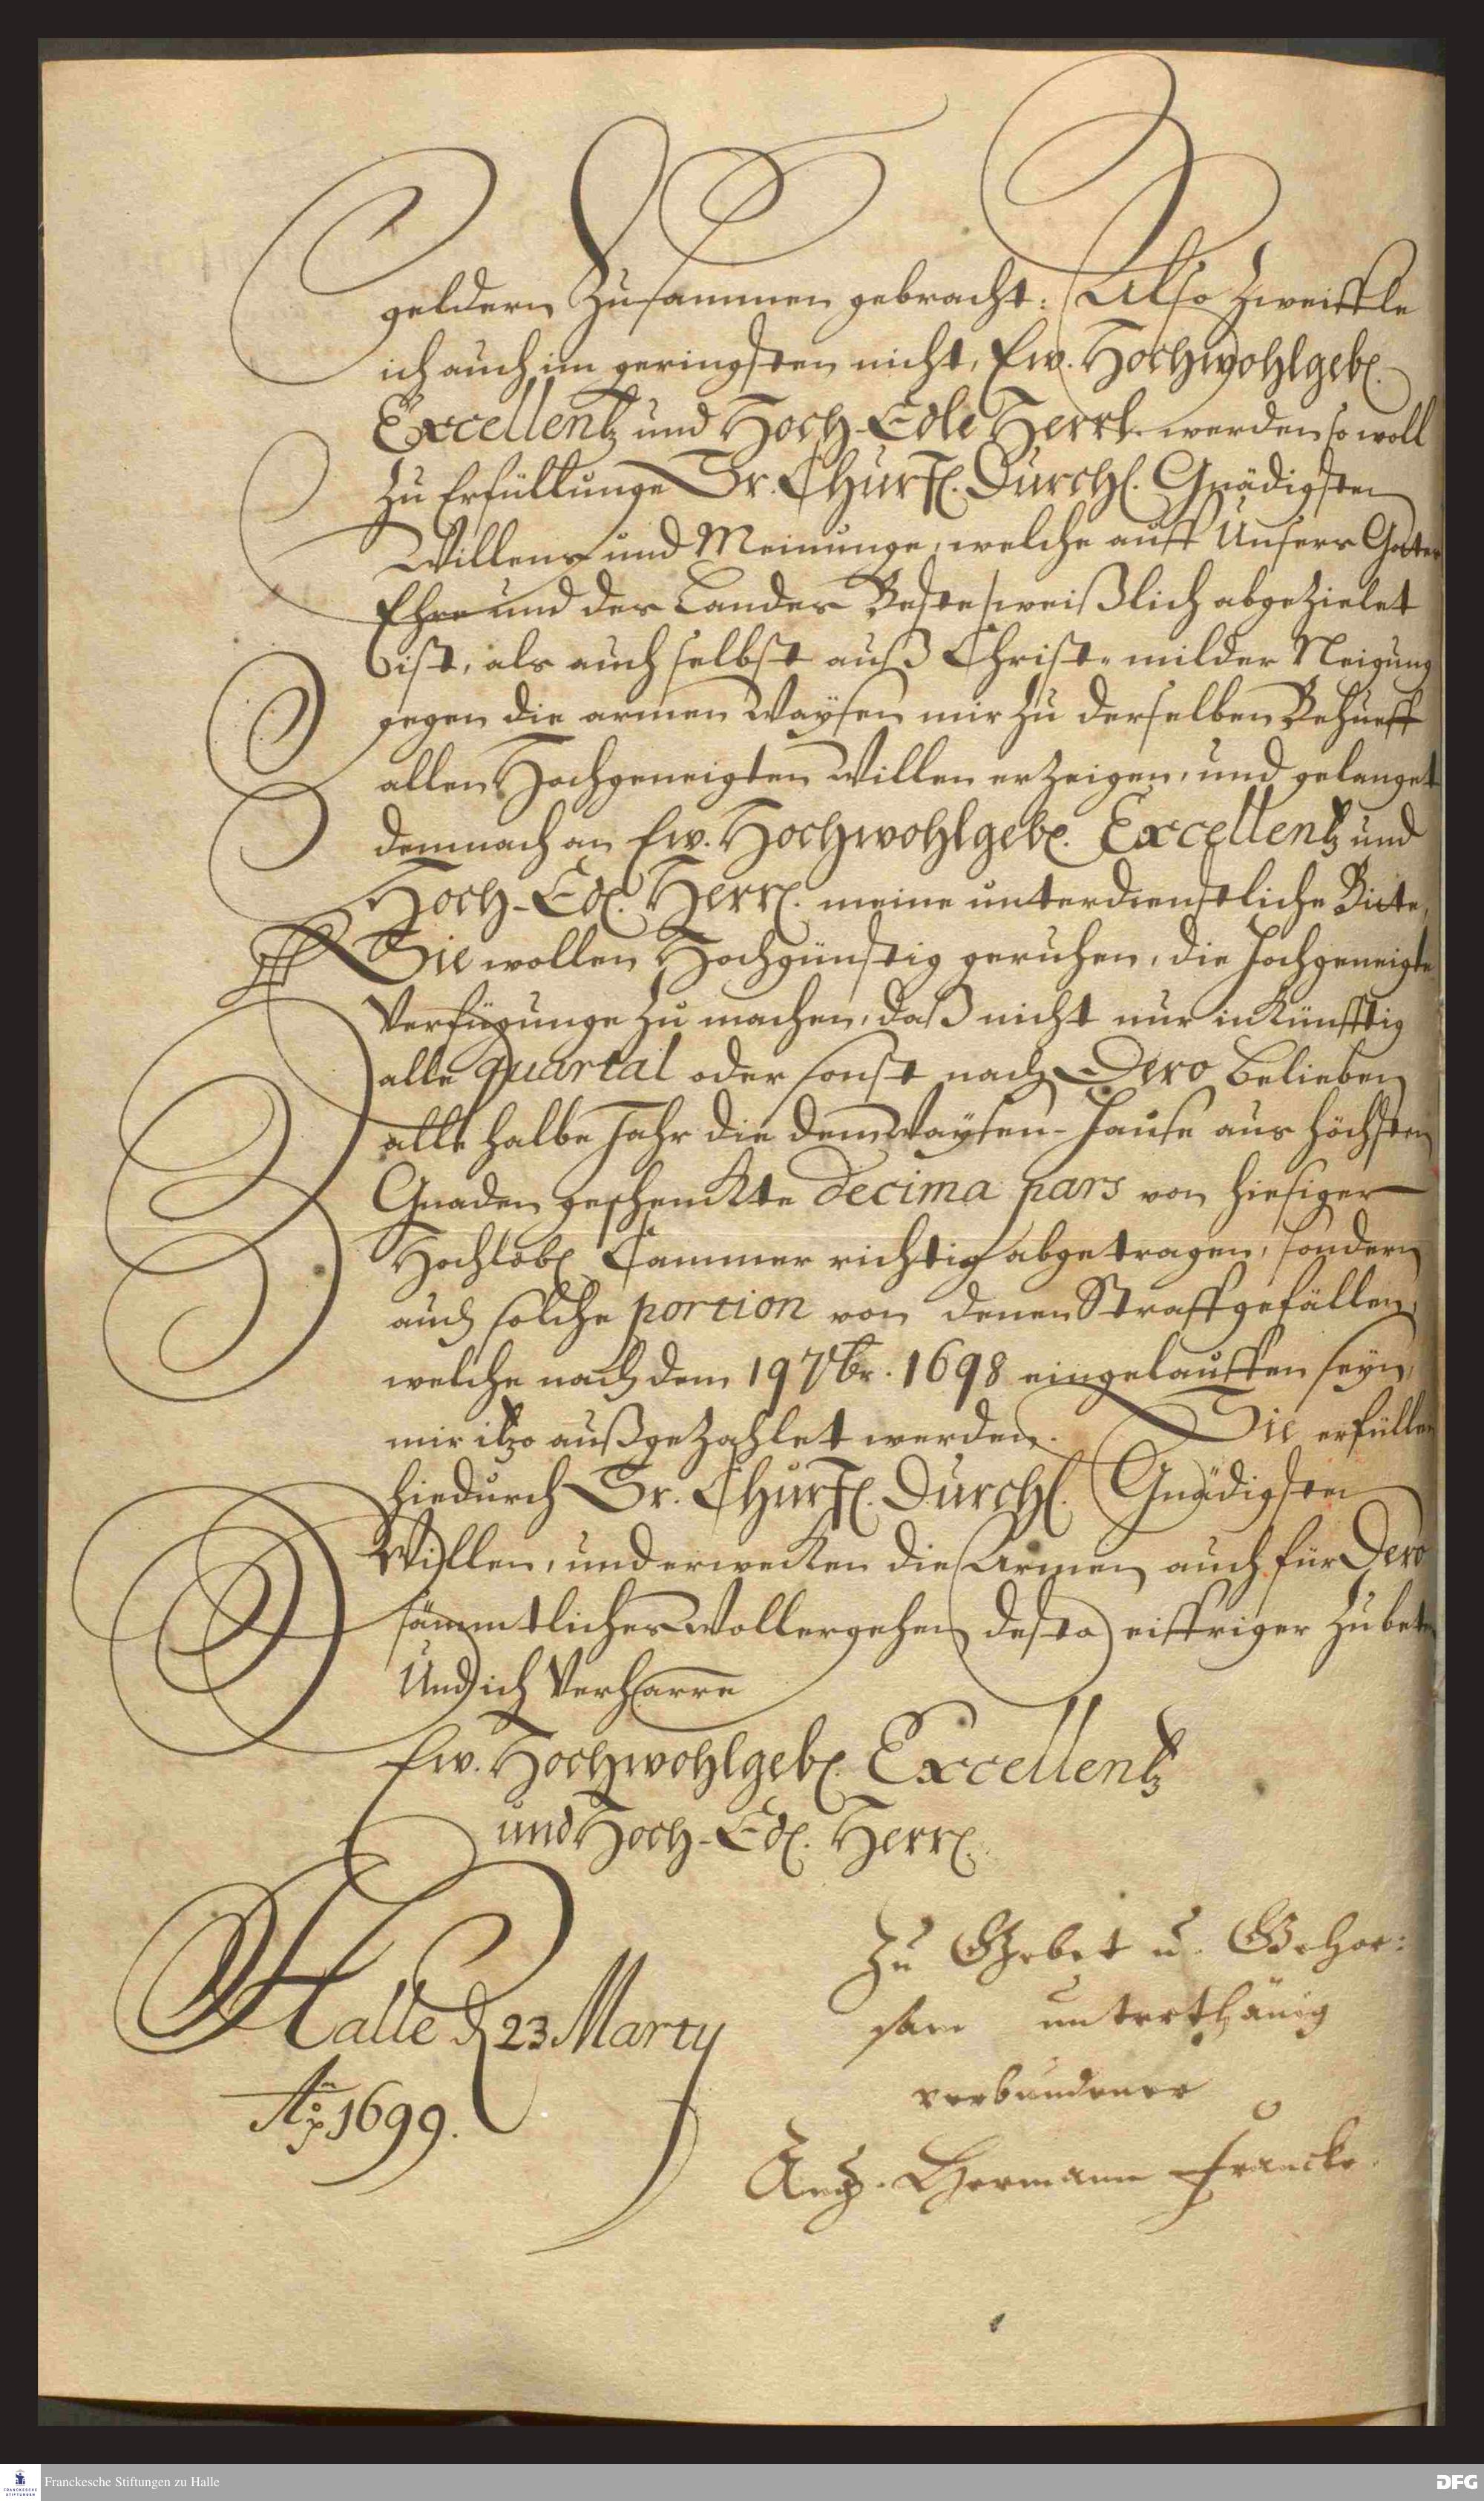 geldern zusammen gebracht: Also zweiffle
ich auch im geringsten nicht, Ew. Hochwohlgeb.
Excellentz und Hoch-Edle Herrl. werden so woll
zu Erfüllunge Sr. Churfl. Durchl. Gnädigsten
Willens und Meinunge, welche auff Unsers Gottes
Ehre und des Landes Beste weißlich abgezielet
ist, als auch selbst auß Christ-milder Neigung
gegen die armen Waysen mir zu derselben Behueff
allen Hochgeneigten Willen erzeigen, und gelanget
demnach an Ew. Hochwohlgeb. Excellentz und
Hoch-Edl. Herrl. meine unterdienstliche Bitte,
Sie wollen Hochgünstig geruhen, die hochgeneigte
Verfügunge zu machen, daß nicht nur inkünfftig
alle quartal oder sonst nach Dero Belieben
alle halbe Jahr die dem Waysen-Hause aus höchsten
Gnaden geschenckte decima pars von hiesiger
Hochlöbl. Cammer richtig abgetragen, sondern
auch solche portion von denen Straffgefällen,
welche nach dem 19 7br. 1698 eingelauffen seyn,
mir itzo außgezahlet werden. Sie erfüllen
hiedurch Sr. Churfl. Durchl. Gnädigsten
Willen, und erwecken die Armen auch für Dero
sämmtliches Wollergehen desto eiffriger zu beten
Und ich Verharre
Ew. Hochwohlgeb. Excellentz
und Hoch-Edl. Herrl.
Zu Gebet u. Gehor-
sam unterthänig
verbundener
Aug. Hermann Francke.
Halle d 23 Marty
Ao 1699.
Franckesche Stiftungen zu Halle
FRANCKESCHE STIFTUNGEN
DFG